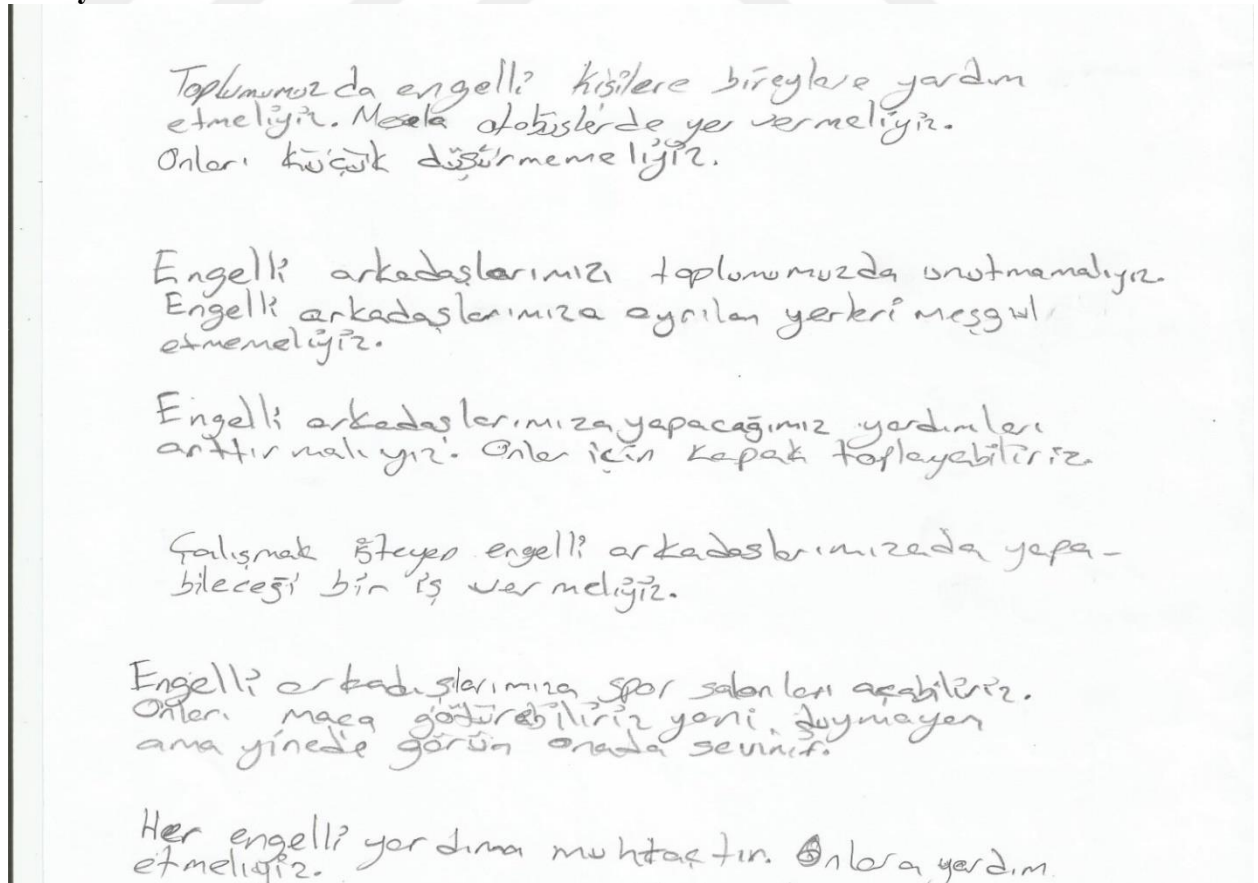 Toplumumuzda engelli kişilere bireylere yardım
etmeliyiz. Mesela otobüslerde yer vermeliyiz.
Onları küçük düşürmemeliyiz.
Engelli arkadaşlarımızı toplumumuzda unutmamalıyız.
Engelli arkadaşlarımıza ayrılan yerleri meşgul
etmemeliyiz.
Engelli arkadaşlarımıza yapacağımız yardımları
arttırmalıyız. Onlar için kapak toplayabiliriz.
Çalışmak isteyen engelli arkadaşlarımızada yapa-
bileceği bir iş vermeliyiz.
Engelli arkadaşlarımıza spor salonları açabiliriz.
Onları maça götürebiliriz yani duymayan
ama yinede görün onada sevinir.
Her engelli yardıma muhtaçtır. Onlara yardım
etmeliyiz.